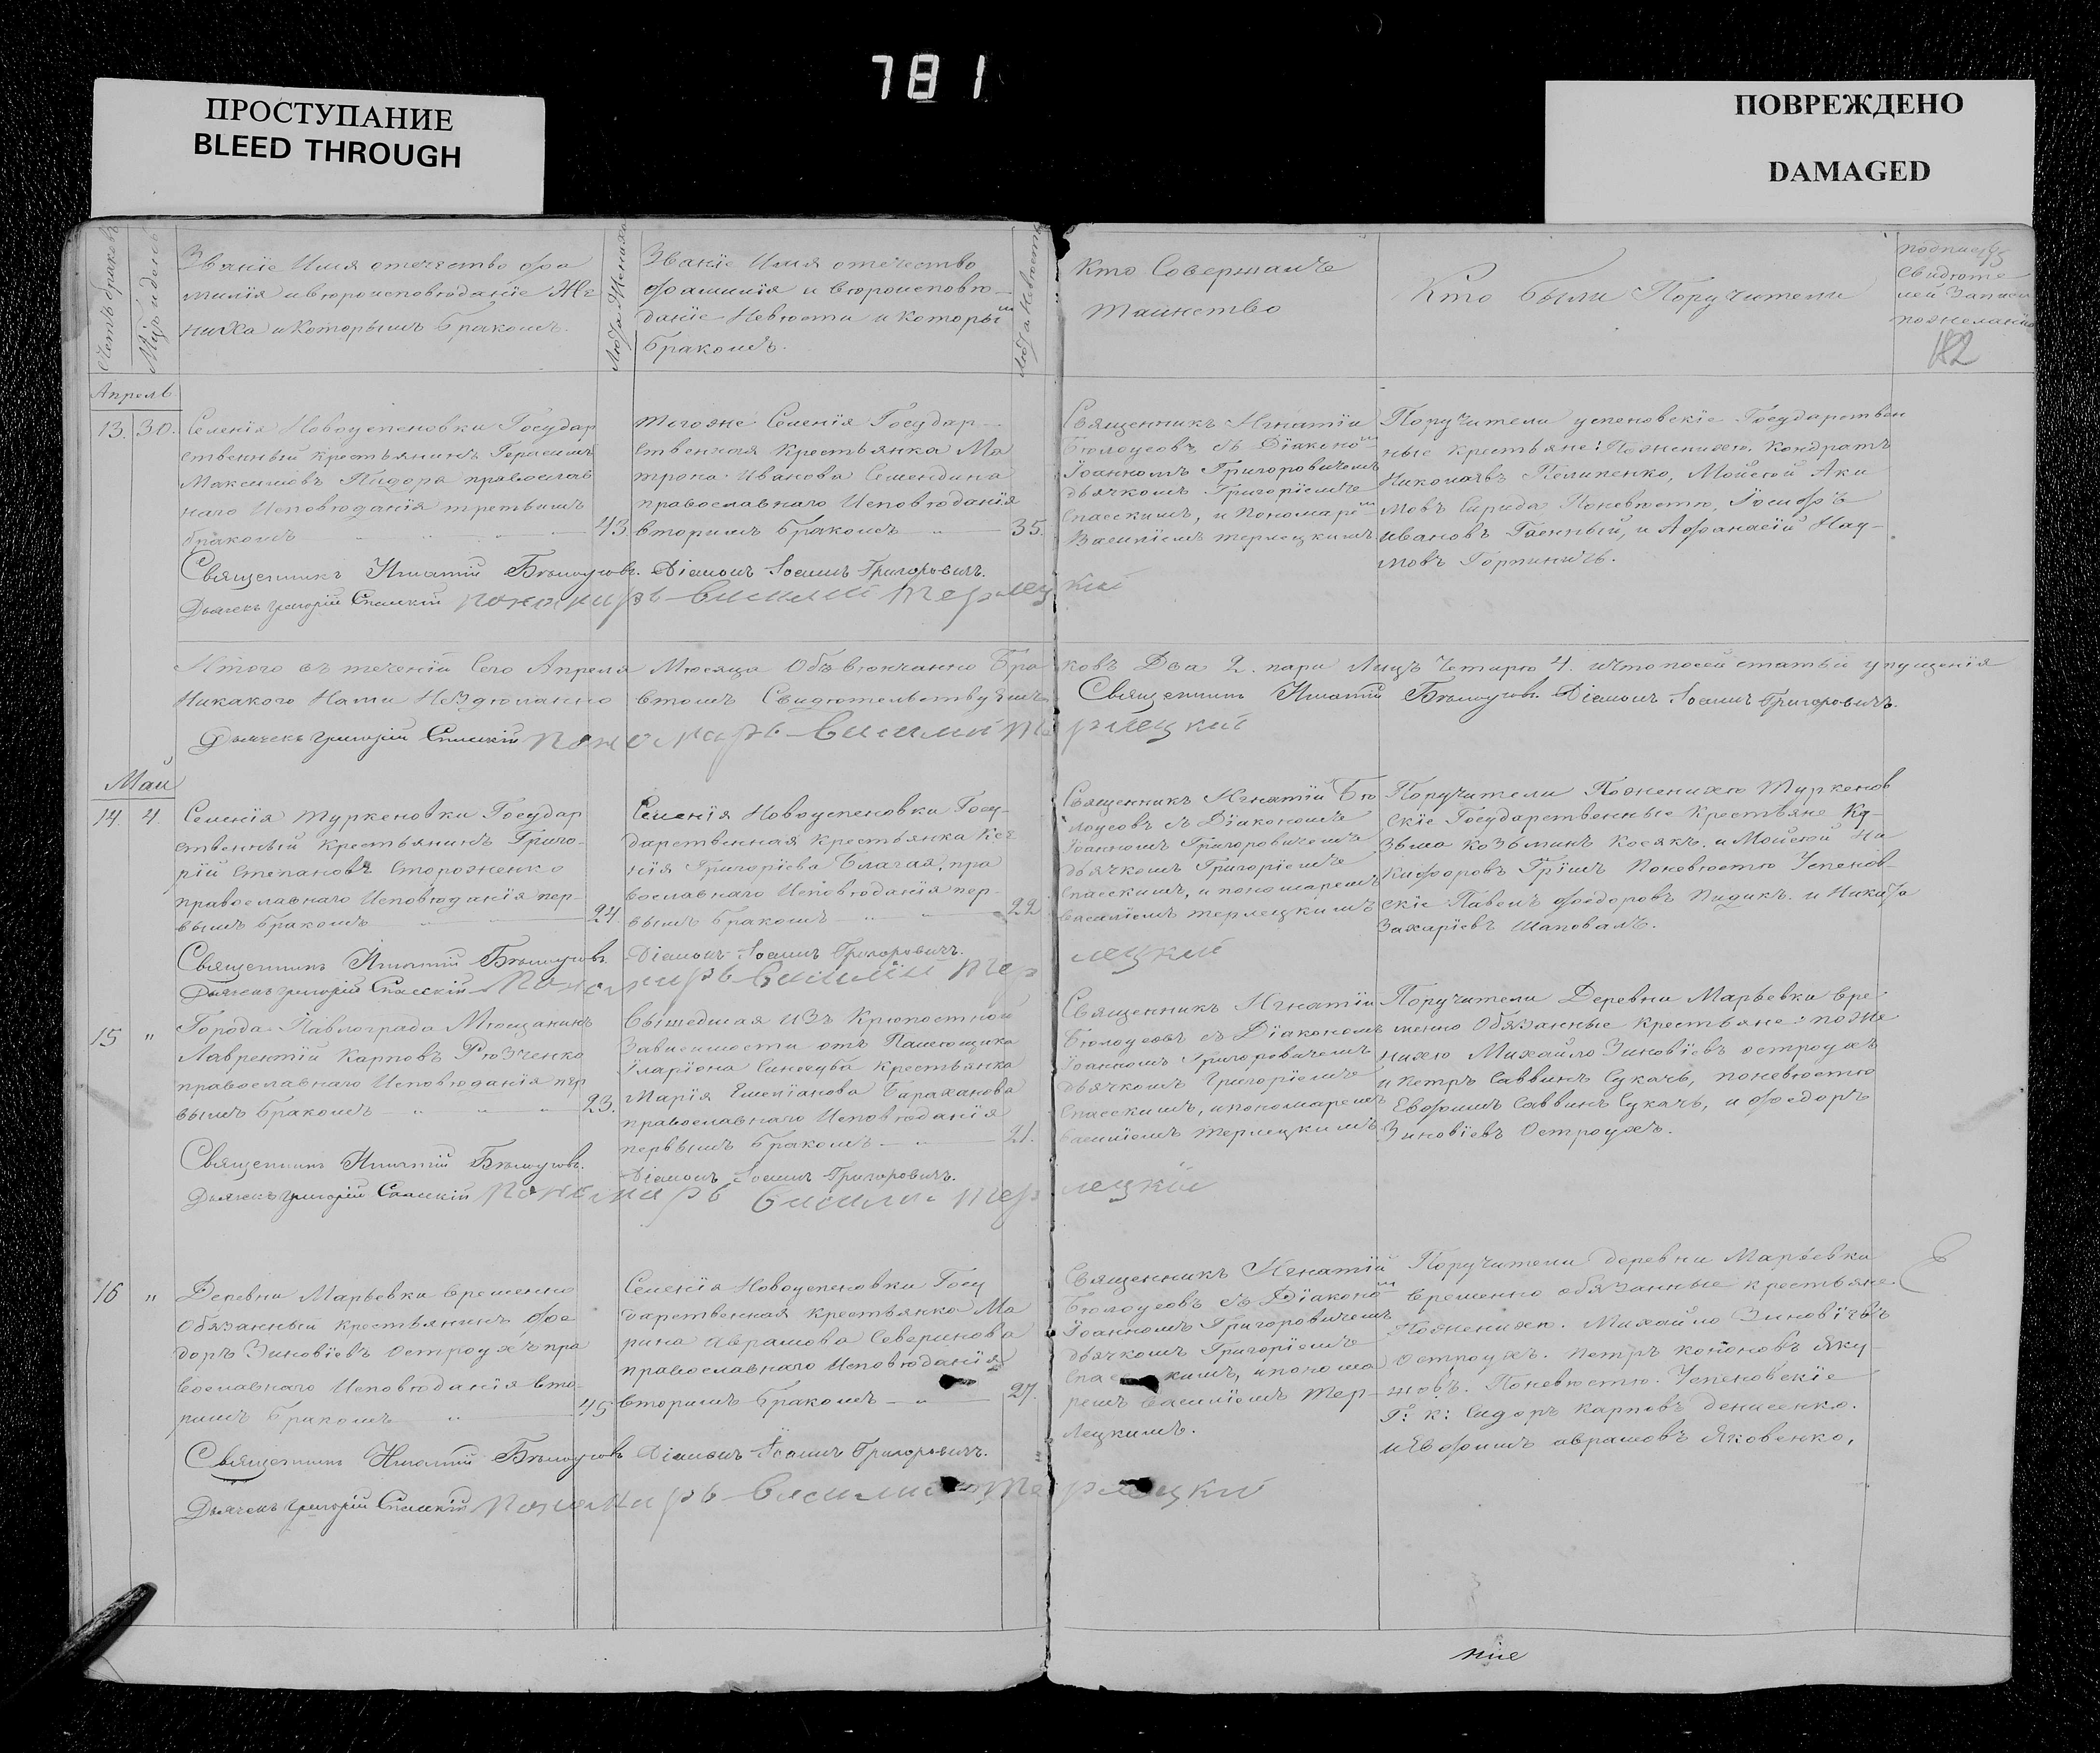 781
ПРОСТУПАНИЕ
BLEED THROUGH
ПОВРЕЖДЕНО
DAMAGED
Счетъ браковъ
Мѣс. и день
Званіе Имя отечество фа
милія и вѣроисповѣданіе Же
ниха и Которымъ бракомъ.
Лѣта Жениха
Званіе Имя отечество
фамилія и вѣроисповѣ-
даніе Невѣсты и Которы
бракомъ.
Лѣта Невѣсты
Кто Совершалъ
таинство
Кто Были Поручители
подпись
Свидѣте
лей Записи
по желанію
182
Апрель
13. 30.
Селенія Новоуспеновки Государ
ственный крестьянинъ Герасимъ
Максимовъ Пидора православ
наго Исповѣданія третьимъ
бракомъ 43.
того же Селенія Государ-
ственная Крестьянка Ма
трона Иванова Семендина
православнаго Исповѣданія
вторымъ бракомъ 35.
Священникъ Игнатій
Бѣлоусовъ съ Діаконом
Іоанномъ Григоровичемъ
дьячкомъ Григоріемъ
Спасскимъ, и Пономарем
Василіемъ терлецкимъ
Поручители успеновскіе Государствен
ные крестьяне: По женихѣ, Кондратъ
Николаевъ Пелипенко, Мойсей Аки
мовъ Сирида По невѣстѣ, Іосифъ
ивановъ Гаенный, и Афанасій Нау-
мовъ Горпиничъ.
Священникъ Игнатій Бѣлоусовъ. Діаконъ Іоаннъ Григоровичъ.
Дьячекъ Григорій Спасскій пономарь Василий терлецкий
Итого въ теченіи Сего Апреля Мѣсяца Объвѣнчанно Браковъ Два 2. пары Лицъ четыре 4. и что по сей статьи упущенія
Никакого Нами Не Здѣланно в томъ Свидѣтельствуемъ Священникъ Игнатій Бѣлоусовъ. Діаконъ Іоаннъ Григоровичъ.
Дьячекъ Григорій Спасскій пономарь Василий терлецкий
Май
14. 4.
Селенія Туркеновки Государ
ственный Крестьянинъ Григо-
рій Степановъ Стороженко
православнаго Исповѣданія пер-
вымъ бракомъ 24.
Селенія Новоуспеновки Госу-
дарственная Крестьянка Ксе
нія Григоріева Благая, пра
вославнаго Исповѣданія пер-
вымъ бракомъ 22.
Священникъ Игнатій Бѣ
лоусовъ съ Діакономъ
Іоанномъ Григоровичемъ
дьячкомъ Григоріемъ
Спасскимъ, и пономаремъ
Василіемъ терлецкимъ
Поручители По женихѣ Туркенов
скіе Государственные Крестьяне Ку-
зьма Козьминъ Косякъ. и Мойсей Ни
кифоровъ Гришъ По невѣстѣ Успенов
скіе Павелъ федоровъ Пидикъ. и Никифо
Захаріевъ Шаповалъ.
Священникъ Игнатій Бѣлоусовъ. Діаконъ Іоаннъ Григоровичъ.
Дьячекъ Григорій Спасскій пономарь Василий терлецкий
15 "
Города Павлограда Мѣщанинъ
Лаврентій Карповъ Рѣзченко
православнаго Исповѣданія пер
вымъ бракомъ 23.
Вышедшая изъ Крѣпостной
Зависимости отъ Помѣщика
Іларіона Синегуба крестьянка
Марія Емеліанова Бараханова
православнаго Исповѣданія
первымъ бракомъ 21.
Священникъ Игнатій
Бѣлоусовъ съ Діакономъ
Іоанномъ Григоровичемъ
дьячкомъ Григоріемъ
Спасскимъ, и пономаремъ
василіемъ терлецкимъ
Поручители Деревни Марьевки вре-
менно Обязанные крестьяне: по же
нихѣ Михайло Зиновіевъ остроухъ
и Петръ Саввинъ Сукачъ, по невѣстѣ
Евфимъ Саввинъ Сукачъ, и федоръ
Зиновіевъ Остроухъ.
Священникъ Игнатій Бѣлоусовъ.
Діаконъ Іоаннъ Григоровичъ.
Дьячекъ Григорій Спасскій пономарь Василий терлецкій
16 "
Деревни Марьевки временно
Обязанный крестьянинъ фе
доръ Зиновіевъ Остроухъ пра
вославнаго Исповѣданія вто-
рымъ бракомъ 45.
Селенія Новоуспеновки Госу
дарственная Крестьянка Ма
рина Аврамова Северинова
православнаго Исповѣданія
вторымъ бракомъ 27.
Священникъ Игнатій
Бѣлоусовъ съ Діаконо
Іоанномъ Григоровичемъ
дьячкомъ Григоріемъ
Спасскимъ, и понома
ремъ василіемъ тер-
лецкимъ.
Поручители деревни Марьевки
временно обязанные крестьяне.
По женихѣ. Михайло Зиновіевъ
Остроухъ. Петръ Кононовъ Яку-
новъ. По невѣстѣ. Успеновскіе
Г: К: Сидоръ Карповъ Денисенко.
и Евфимъ аврамовъ Яковенко,
Священникъ Игнатій Бѣлоусовъ Діаконъ Іоаннъ Григоровичъ.
Дьячекъ Григорій Спасскій пономарь Василий терлецкий